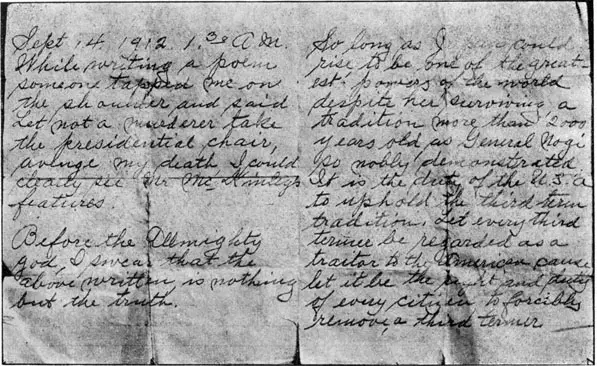 Sept 14 1912 1.30 A.M.
While writing a poem
someone tapped me on
the shoulder and said
Let not a murderer take
the presidential chair,
avenge my death I could
clearly see Mr McKinleys
features.
Before the Allmighty
god, I swear that the
above written is nothing
but the truth.
So long as could
rise to be one of the great-
est powers of the world
despite her surviving a
tradition more than 2000
years old as General Nogi
so nobly demonstrated
It is the duty of the U.S.A
to uphold the third term
tradition. Let every third
termer be regarded as a
traitor to the American cause
let it be the and duty
of every citizen to forcibly
remove a third termer